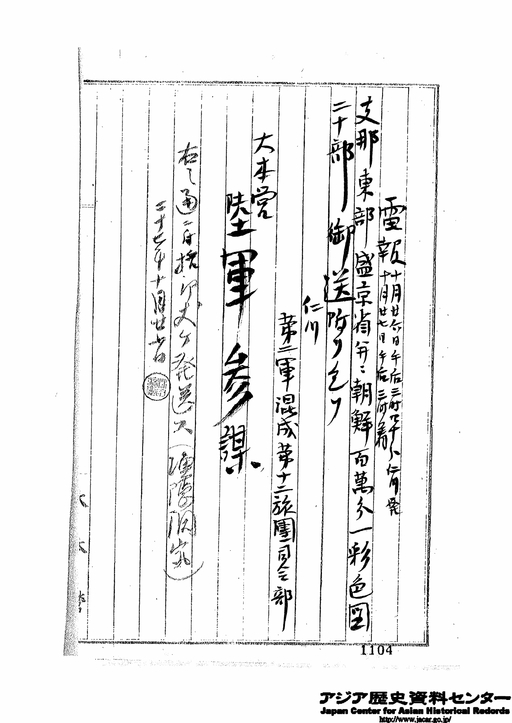 電報 十月廿六日午后三時四十分仁川発
十月廿七日午后三時着
支那東部盛京省并ニ朝鮮百萬分一彩色図
二十部御送附ヲ乞フ
仁川
第二軍混成第十二旅團司令部
大本営
陸軍参謀
右之通ニ付
二十七年十月廿七日
1104
アジア歴史資料センター
Japan Center for Asian Historical Records
http://www.jacar.go.jp/